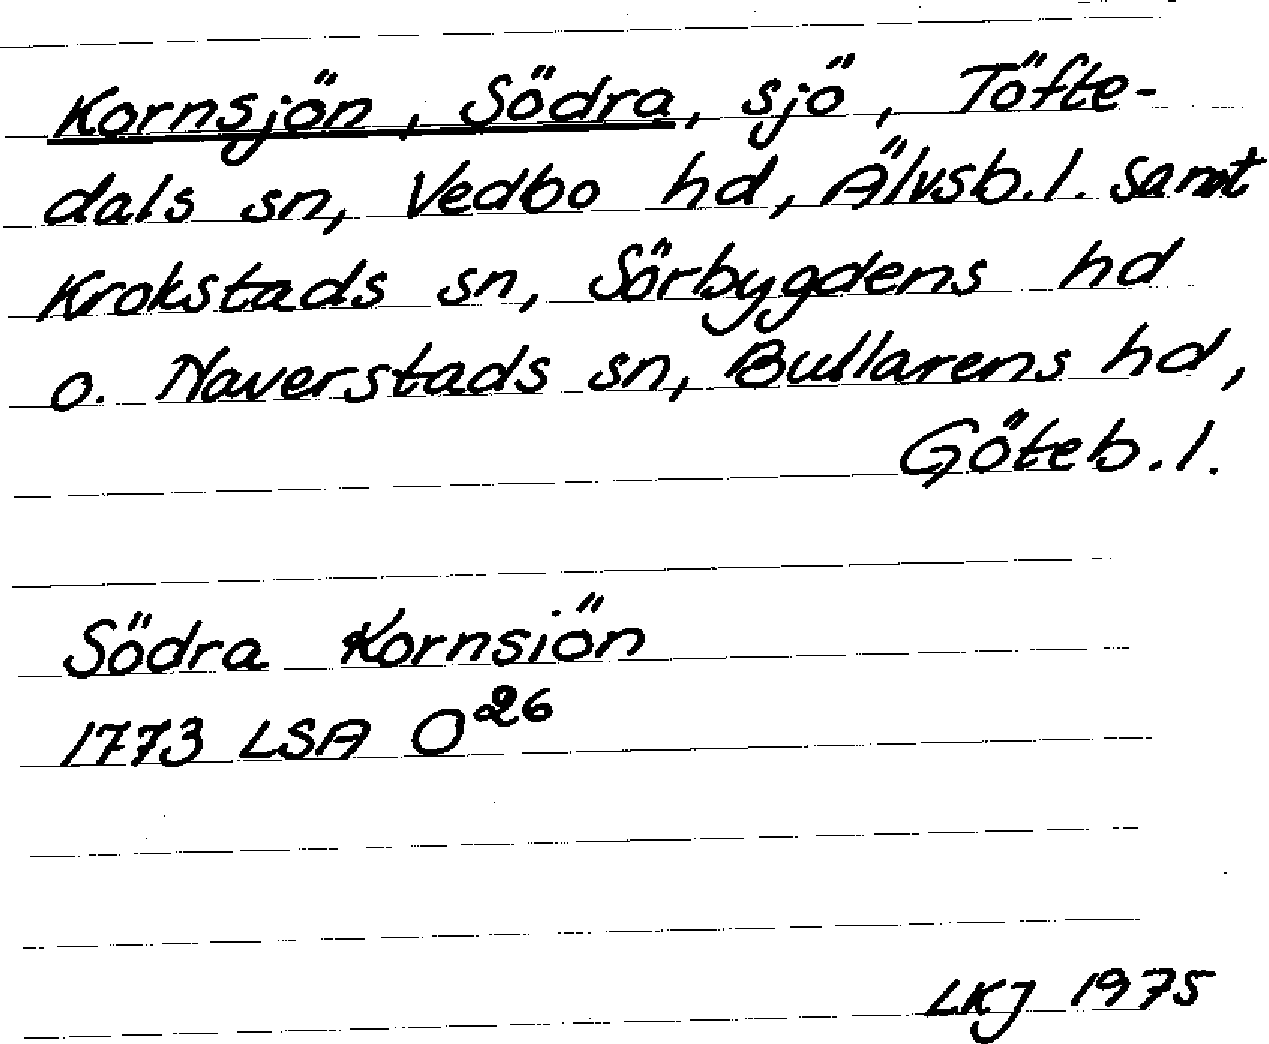 Kornsjön, Södra, sjö, Töfte-
dals sn, Vedbo hd, Älvsb. l. samt
Krokstads sn, Sörbygdens hd
o. Naverstads sn, Bullarens hd,
Göteb. l.
Södra Kornsiön
1773 LSA O²⁶
LKJ 1975